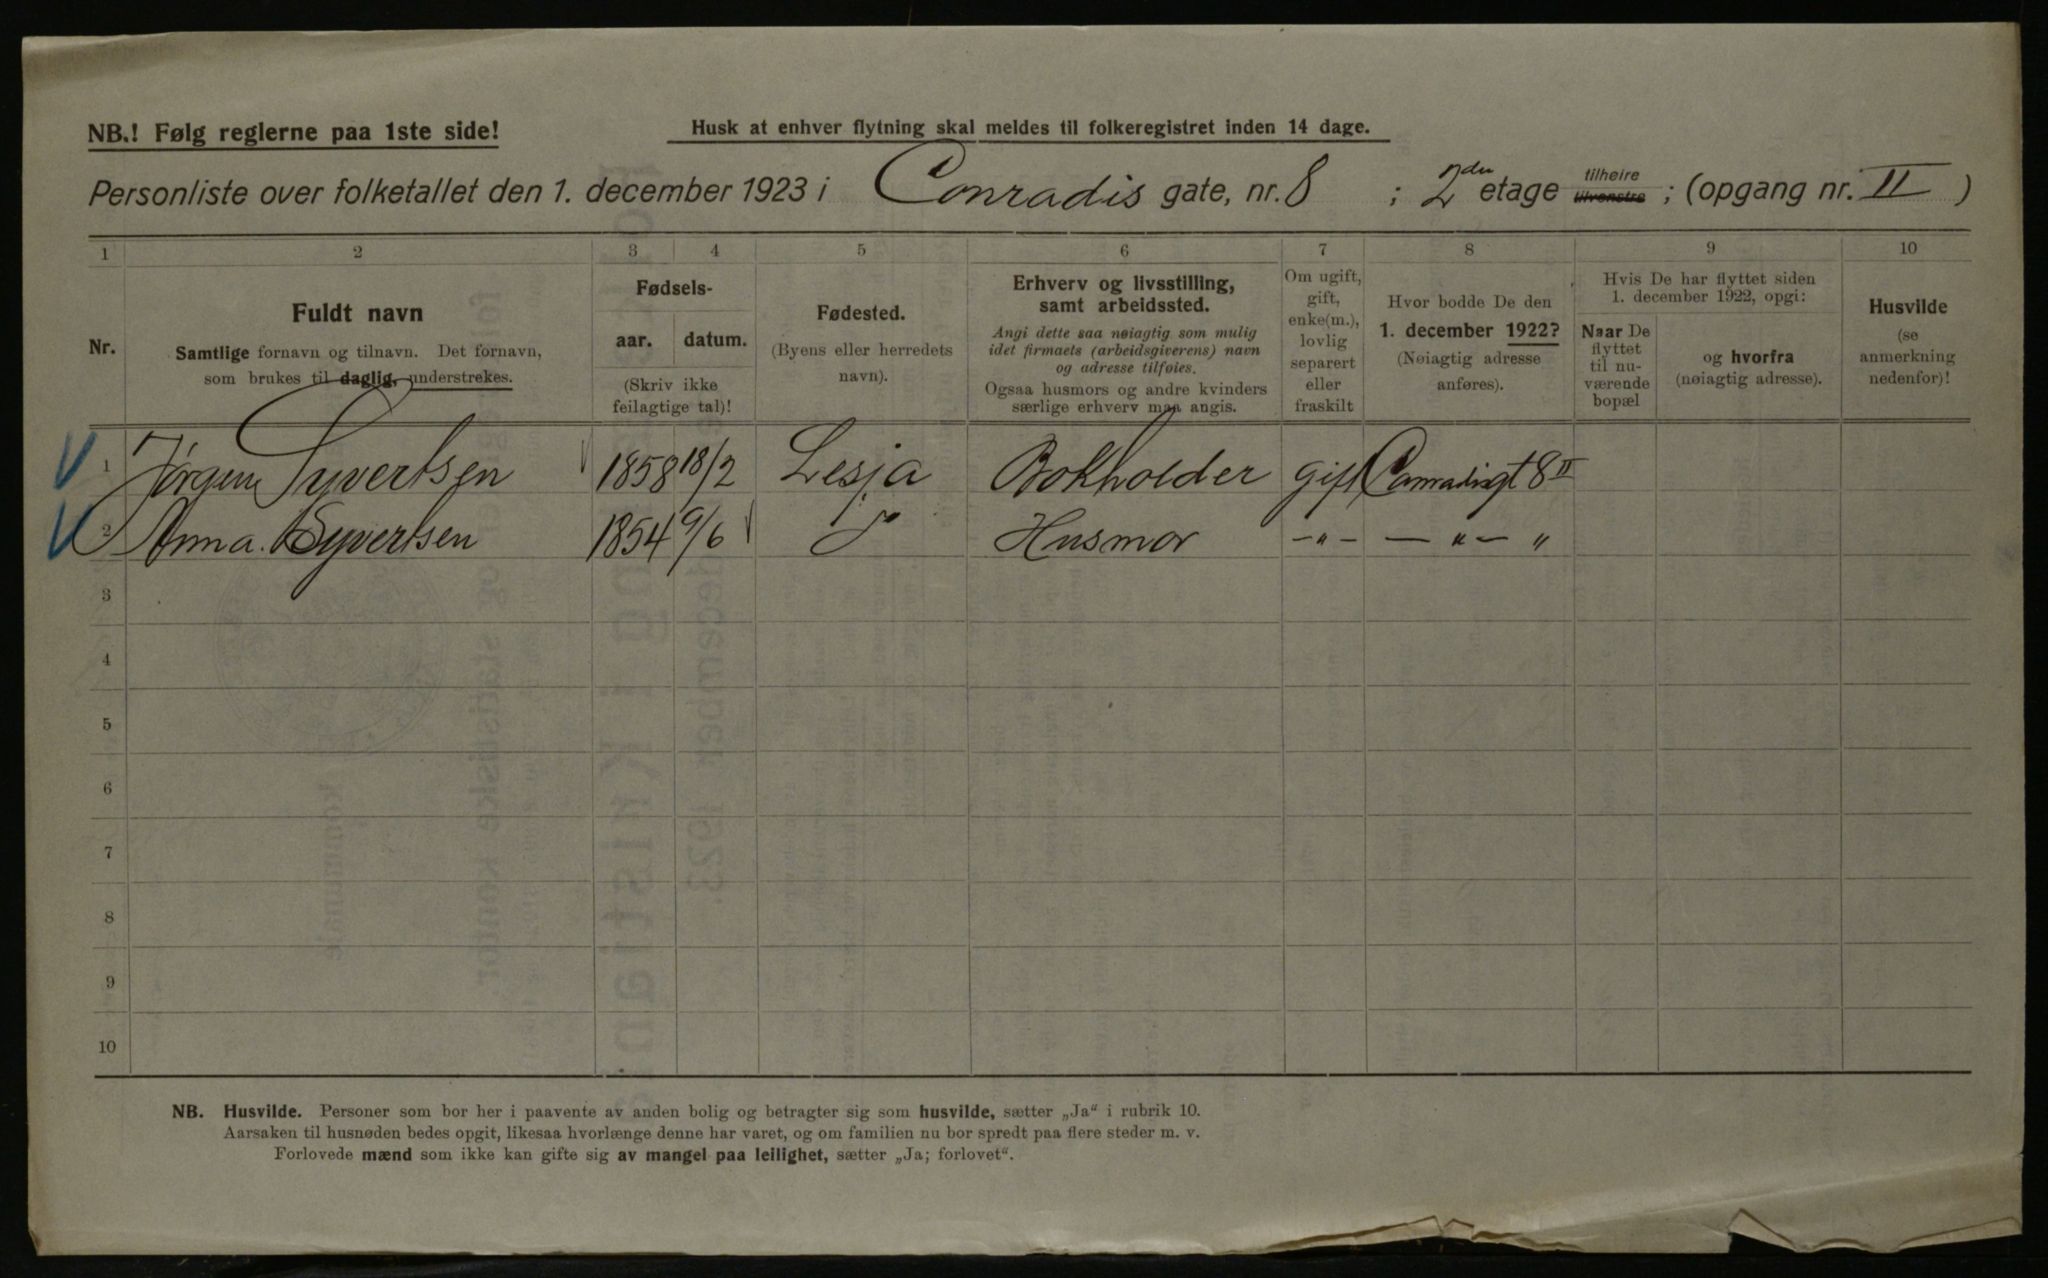 NB.! Følg reglerne paa 1ste side!
Husk at enhver flytning skal meldes til folkeregistret inden 14 dage.
Personliste over folketallet den 1. december 1923 i Conradis gate, nr. 8 ; 2den etage tilheire tilvenstre ; (opgang nr. II )
1 2 3 4 5 6 7 8 9 10
Nr.
Fuldt navn
Samtlige fornavn og tilnavn. Det fornavn,
som brukes til daglig, understrekes.
Fødsels-
aar. datum.
(Skriv ikke
feilagtige tal)!
Fødested.
(Byens eller herredets
navn).
Erhverv og livsstilling,
samt arbeidssted.
Angi dette saa nøiagtig som mulig
idet firmaets (arbeidsgiverens) navn
og adresse tilføies.
Ogsaa husmors og andre kvinders
særlige erhverv maa angis.
Om ugift,
gift,
enke(m.),
lovlig
separert
eller
fraskilt
Hvor bodde De den
1. december 1922?
(Nøiagtig adresse
anføres).
Hvis De har flyttet siden
1. december 1922, opgi:
Naar De
flyttet
til nu-
værende
bopæl
og hvorfra
(nøiagtig adresse).
Husvilde
(se
anmerkning
nedenfor)!
1 Jørgen Syvertsen 1858 18/2 Lesja Bokholder Gift Conradisgt 8 II
2 Anna Syvertsen 1854 9/6 Husmor –„– – „ – „
3
4
5
6
7
8
9
10
NB. Husvilde. Personer som bor her i paavente av anden bolig og betragter sig som husvilde, sætter „Ja“ i rubrik 10.
Aarsaken til husnøden bedes opgit, likesaa hvorlænge denne har varet, og om familien nu bor spredt paa flere steder m. v.
Forlovede mænd som ikke kan gifte sig av mangel paa leilighet, sætter „Ja; forlovet“.